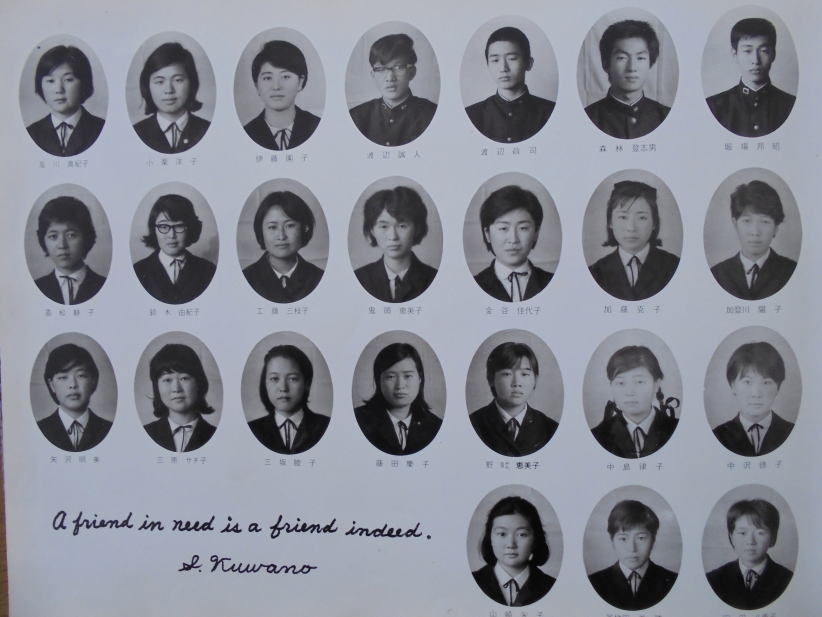 小栗洋子
伊藤園子
渡辺誠人
渡辺眞司
森林登志男
堀場邦昭
高松静子
鈴木由紀子
工藤三枝子
鬼頭恵美子
金谷佳代子
加藤克子
加登川陽子
矢沢明美
三原サチ子
三坂睦子
藤田慶子
野 恵美子
中島律子
中沢 子
A friend in need is a friend indeed.
S. Kuwano